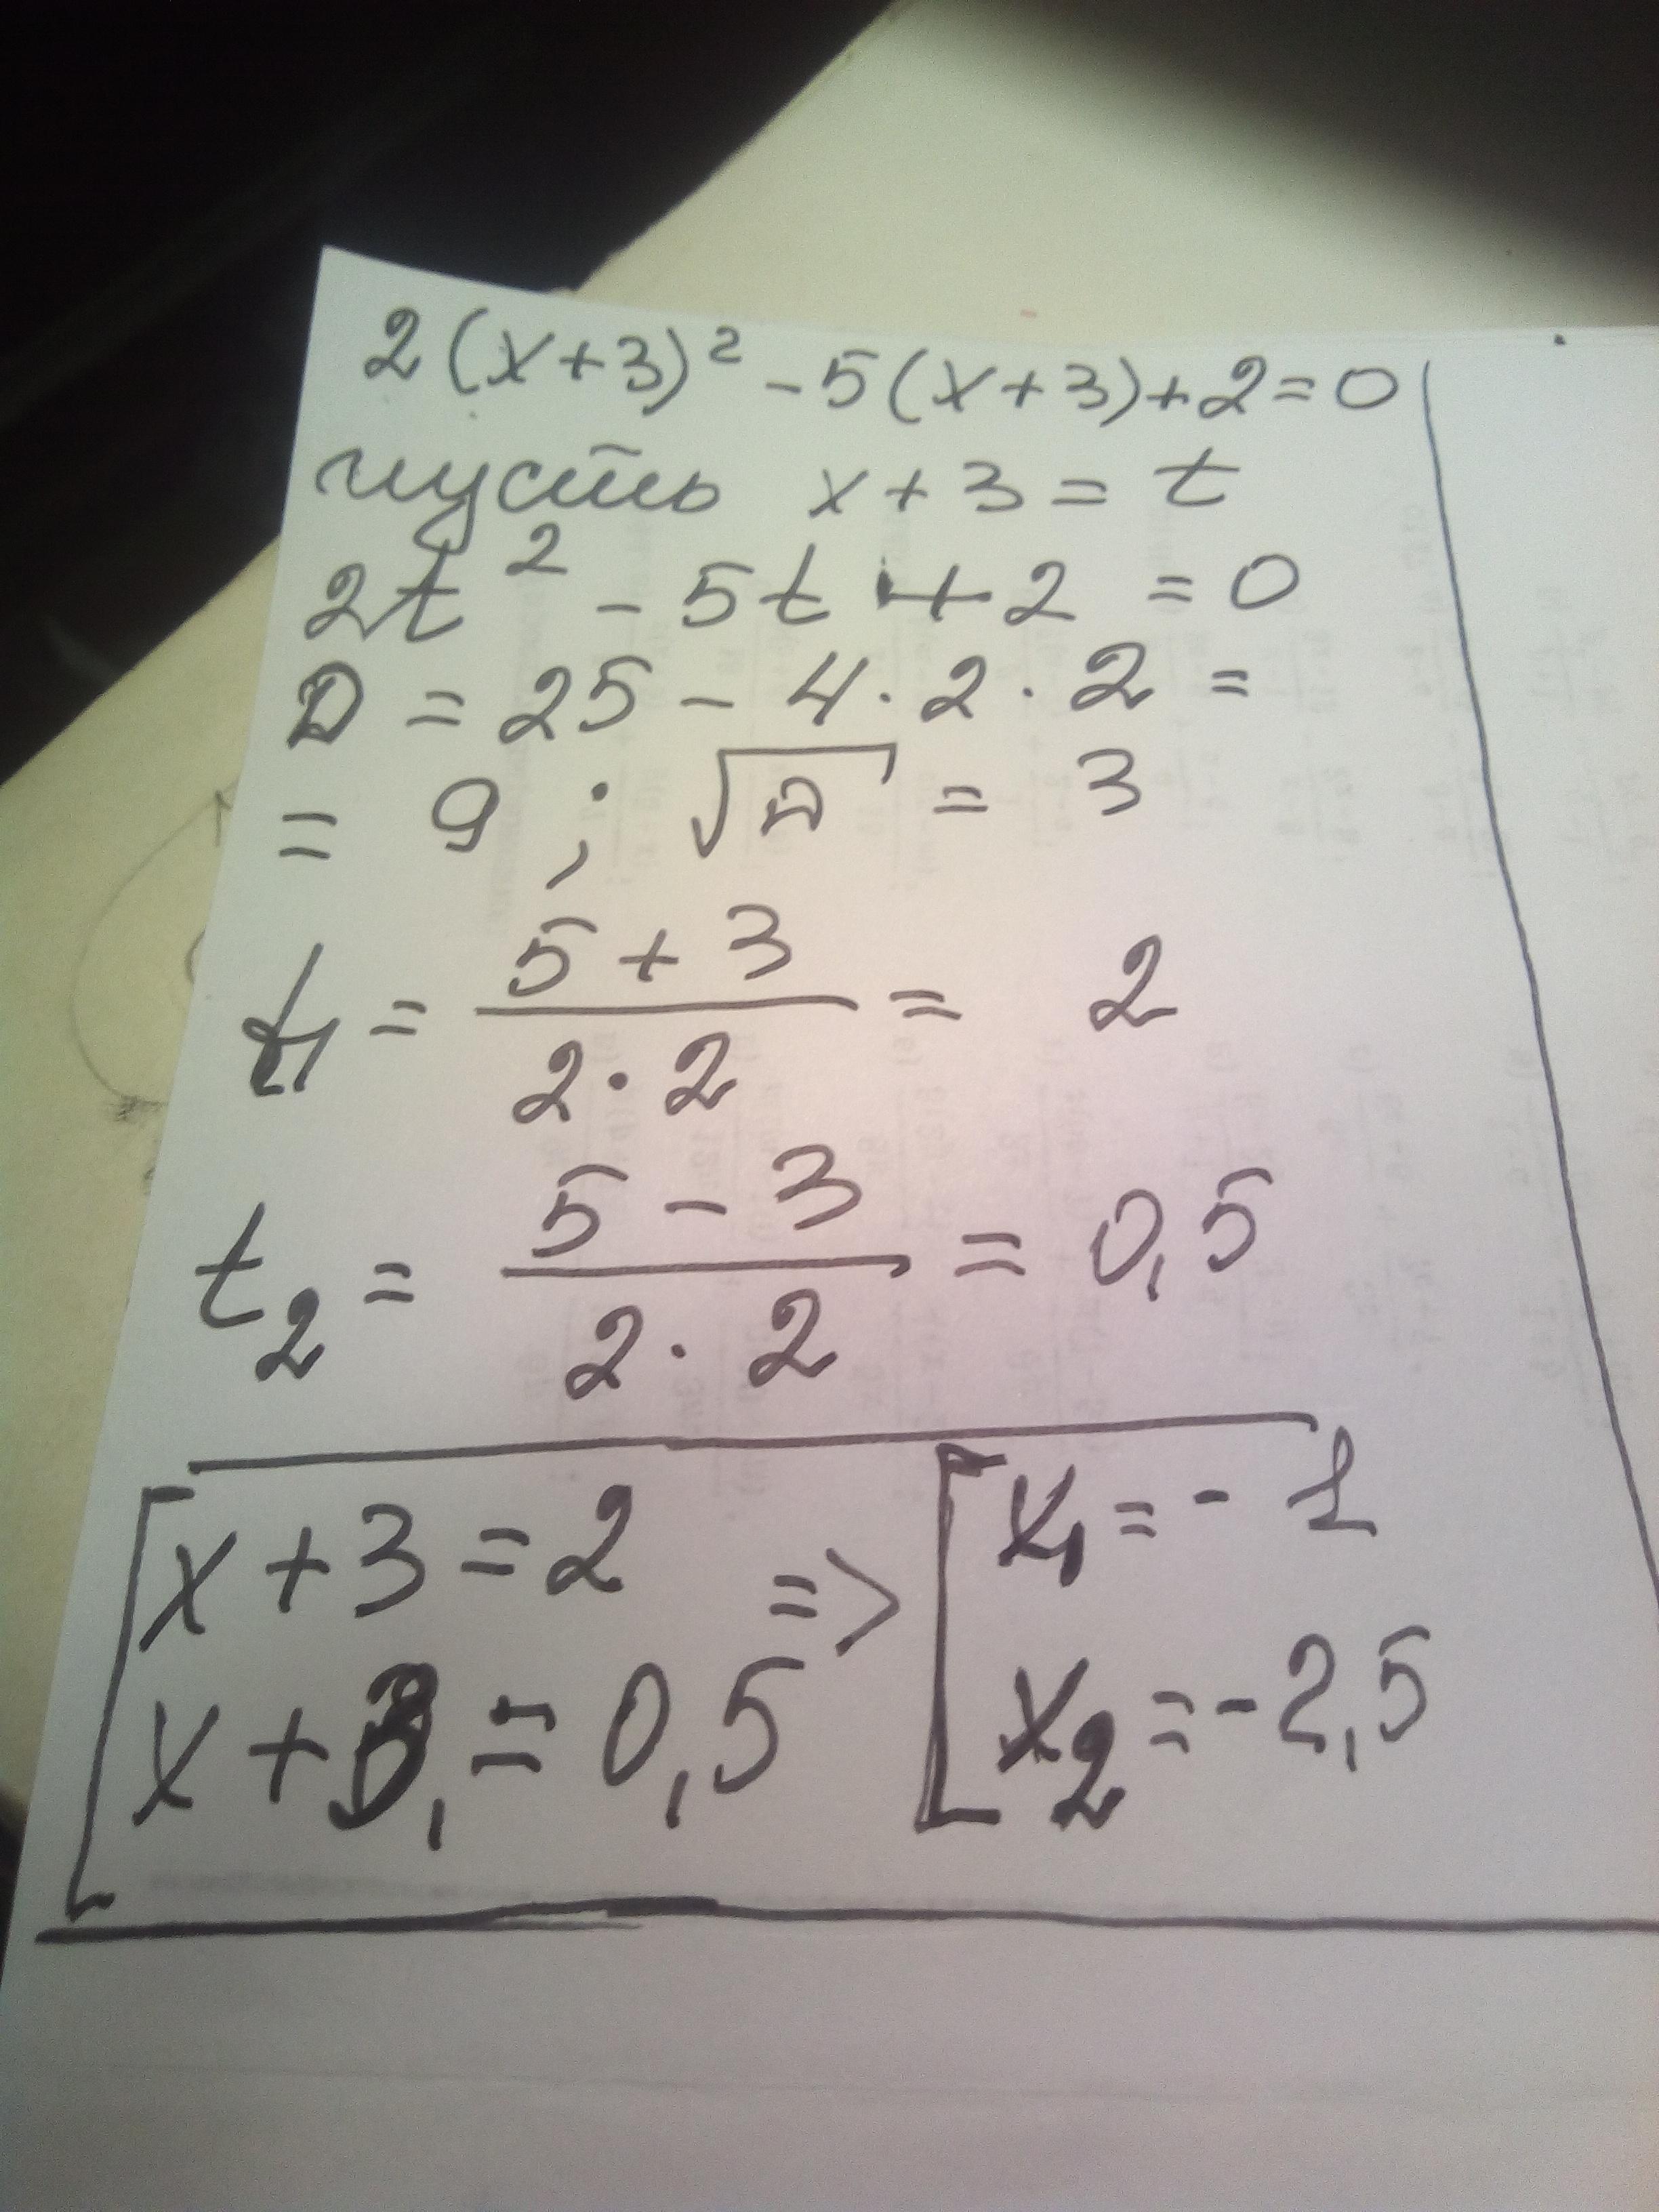 2(x+3)² - 5(x+3)+2=0
пусть x+3=t
2t² - 5t + 2 = 0
D = 25 - 4·2·2 =
= 9 ; √D = 3
t₁ = (5+3)/(2·2) = 2
t₂ = (5-3)/(2·2) = 0,5
[x+3=2 => [x₁=-1
x+3=0,5 x₂=-2,5